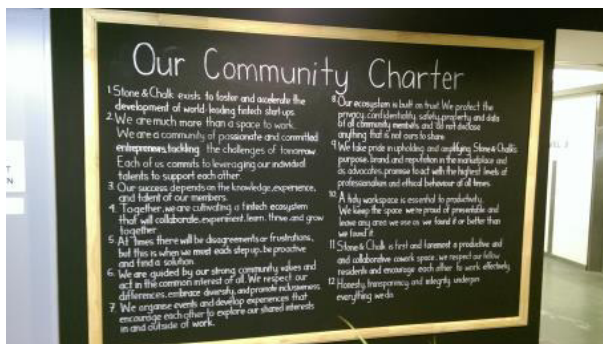 Our Community Charter
1. Stone & Chalk exists to foster and accelerate the
development of world-leading fintech start ups.
2. We are much more than a space to work.
We are a community of passionate and committed
entrepreneurs, tackling the challenges of tomorrow.
Each of us commits to leveraging our individual
talents to support each other.
3. Our success depends on the knowledge, experience,
and talent of our members.
4. Together, we are cultivating a fintech ecosystem
that will collaborate, experiment, learn, thrive and grow
together.
5. At times there will be disagreements or frustrations,
but this is when we must each step up, be proactive
and find a solution.
6. We are guided by our strong community values and
act in the common interest of all. We respect our
differences, embrace diversity, and promote inclusiveness.
7. We organise events and develop experiences that
encourage each other to explore our shared interests
in and outside of work.
8. Our ecosystem is built on trust. We protect the
privacy, confidentiality, safety, property and data
of all community members and do not disclose
anything that is not ours to share.
9. We take pride in upholding and amplifying Stone & Chalk's
purpose, brand, and reputation in the marketplace and
as advocates, promise to act with the highest levels of
professionalism and ethical behaviour at all times.
10. A tidy workspace is essential to productivity.
We keep the space we're proud of presentable and
leave any area we use as we found it or better than
we found it.
11. Stone & Chalk is first and foremost a productive and
and collaborative cowork space, we respect our fellow
residents and encourage each other to work effectively.
12. Honesty, transparency and integrity underpin
everything we do.